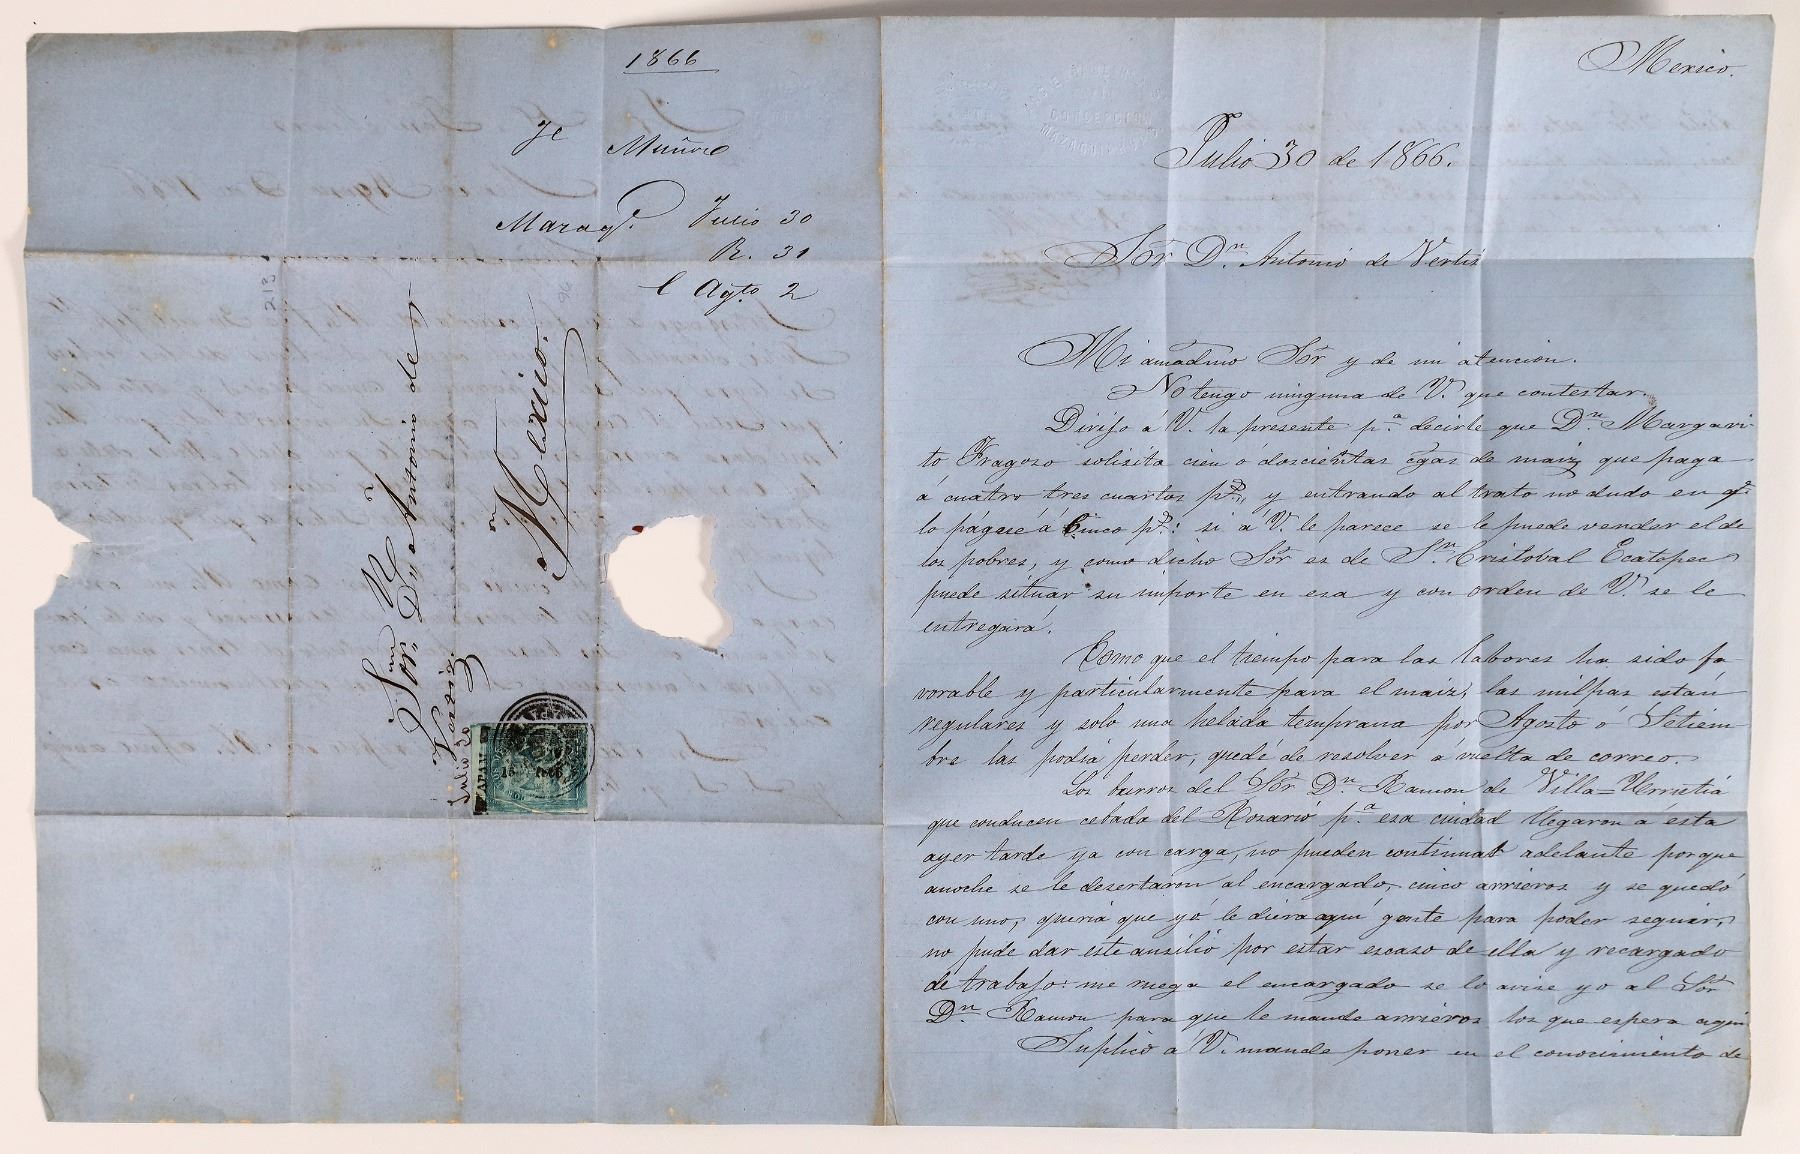 1866
Je Muñoz
Mazaqe. Julio 30
R. 31
C Agto 2
Sor. Dn. Antonio de
Vertiz.
Mexico.
Julio 30
213
96
Mexico.
Julio 30 de 1866.
Sor. Dn. Antonio de Vertis
Mi amadmo Sor. y de mi atencion.
No tengo ninguna de V. que contestar.
Dirijo á V. la presente pa. decirle que Dn. Margari-
to Fragoso solisita cien ó doscientas cgas de maiz que paga
á cuatro tres cuartos ps., y entrando al trato no dudo en qe.
lo págue á Cinco ps.: si á V. le parece se le puede vender el de
los pobres, y como dicho Sor. es de Sn. Cristobal Ecatepec
puede situar su importe en esa y con orden de V. se le
entregará.
Como que el tiempo para las labores ha sido fa-
vorable y particularmente para el maiz, las milpas están
regulares y solo una helada temprana por Agosto ó Setiem
bre las podia perder, quedé de resolver a vuelta de correo.
Los burros del Sor. Dn. Ramon de Villa=Urrietia
que conducen cebada del Rosario pa. esa ciudad llegaron á ésta
ayer tarde ya con carga, no pueden continuar adelante porque
anoche se le desertaron al encargado, cinco arrieros y se quedó
con uno, queria que yó le diera aqui gente para poder seguir,
no pude dar este ausilio por estar escaso de ella y recargado
de trabajo: me ruega el encargado se lo avise yo al Sor.
Dn. Ramon para que le mande arrieros los que espera aqui
Suplico a V. mande poner en el conocimiento de